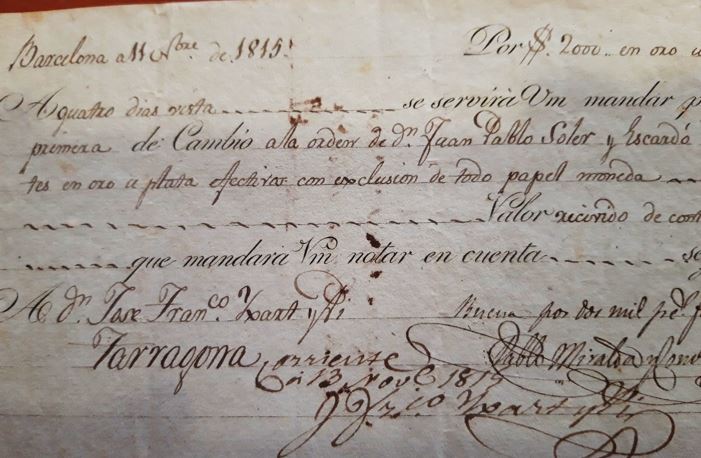 Barcelona a 11 Nbre de 1815. Por $. 2000.. en oro u
A quatro dias vista se servirá Vm mandar p
primera de Cambio a la orden de dn. Juan Pablo Soler y Escardó
tes en oro u plata efectivos con exclusion de todo papel moneda
Valor recivido de con
que mandará Vm notar en cuenta se
A dn. Jose Franco. Yxart y fll
Buena por dos mil ps. f
Tarragona Corriente Pablo Miralda y
a 13 Nove 1815
Yxart y